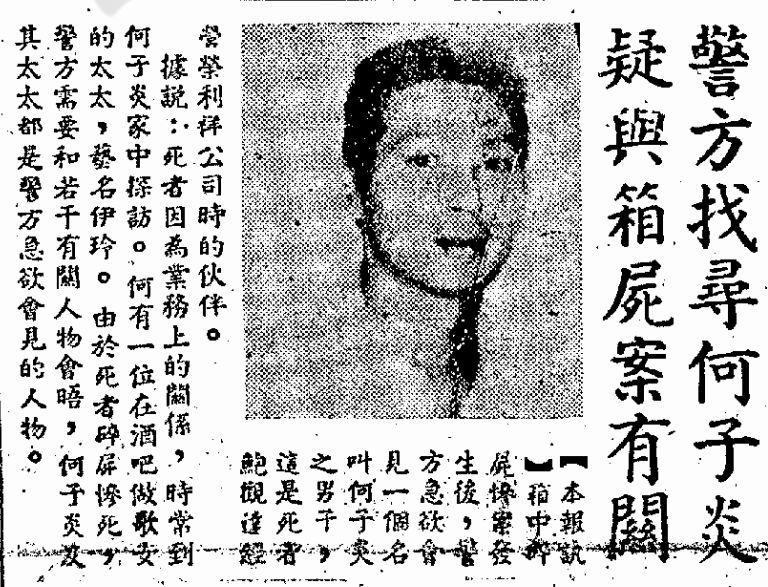 警方找尋何子炎
疑與箱屍案有關
【本報訊
】箱中碎
屍慘案發
生後，警
方急欲會
見一個名
叫何子炎
之男子，
這是死者
鮑觀達經
營榮利祥公司時的伙伴。
據説：死者因為業務上的關係，時常到
何子炎家中探訪。何有一位在酒吧做歌女
的太太，藝名伊玲。由於死者碎屍慘死，
警方需要和若干有關人物會晤，何子炎及
其太太都是警方急欲會見的人物。